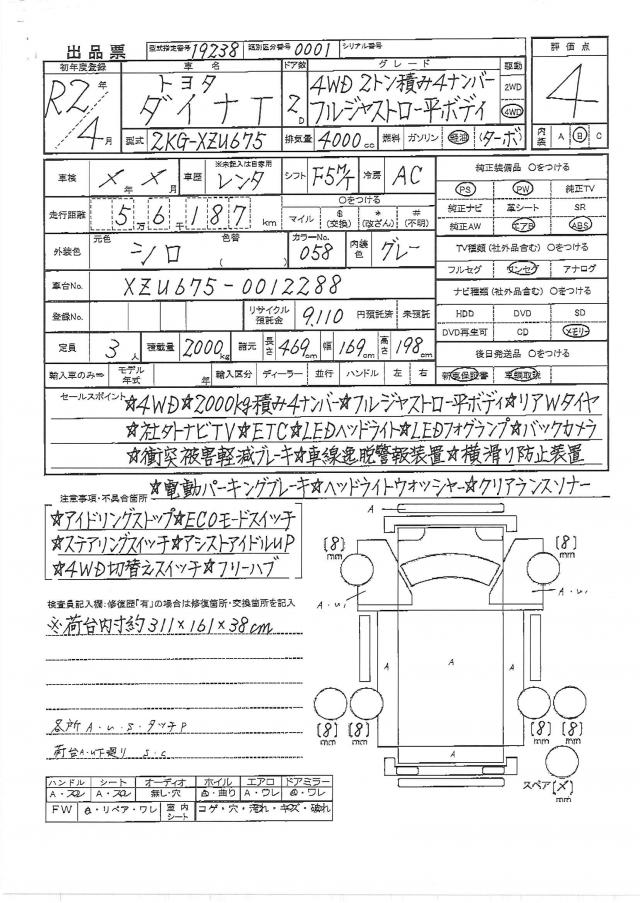 出品票 型式指定番号 19238 類別区分番号 0001 シリアル番号
初年度登録 車名 ドア数 グレード 駆動 評価点
R2年 4月 トヨタ ダイナT 2D 4WD 2トン積み4ナンバー フルジャストロー平ボディ 2WD 4WD 4
型式 2KG-XZU675 排気量 4000cc 燃料 ガソリン 軽油 (ターボ) 内装 A B C
車検 X年X月 車歴 ※未記入は自家用 レンタ シフト F5M/T 冷房 AC 純正装備品 ○をつける
PS PW 純正TV
走行距離 5万6千187km ○をつける マイル $(交換) *(改ざん) #(不明) 純正ナビ 革シート SR
純正AW エアB ABS
外装色 元色 シロ 色替 カラーNo. 058 内装色 グレー TV種類(社外品含む) ○をつける
フルセグ ワンセグ アナログ
車台No. XZU675-0012288 ナビ種類(社外品含む) ○をつける
登録No. リサイクル預託金 9,110 円預託済 未預託 HDD DVD SD
DVD再生可 CD メモリー
定員 3人 積載量 2000kg 諸元 長さ 469cm 幅 169cm 高さ 198cm 後日発送品 ○をつける
輸入車のみ⇒ モデル年式 年 輸入区分 ディーラー 並行 ハンドル 左 右 新車保証書 車輌取説
セールスポイント ☆4WD☆2000kg積み4ナンバー☆フルジャストロー平ボディ☆リアWタイヤ
☆社外ナビTV☆ETC☆LEDヘッドライト☆LEDフォグランプ☆バックカメラ
☆衝突被害軽減ブレーキ☆車線逸脱警報装置☆横滑り防止装置
☆電動パーキングブレーキ☆ヘッドライトウォッシャー☆クリアランスソナー
注意事項・不具合箇所
☆アイドリングストップ☆ECOモードスイッチ
☆ステアリングスイッチ☆アシストアイドルUP
☆4WD切替えスイッチ☆フリーハブ
検査員記入欄:修復歴「有」の場合は修復箇所・交換箇所を記入
※荷台内寸約311×161×38cm
各所A・U・S・タッチP
荷台A・U下廻りS・C
ハンドル シート オーディオ ホイル エアロ ドアミラー
A・スレ A・スレ 無し・穴 A・曲り A・ワレ A・ワレ
FW A・リペア・ワレ 室内シート コゲ・穴・汚れ・キズ・破れ
A
[8]mm [8]mm
A・U1 A・U1
A A A
[8]mm [8]mm [8]mm [8]mm
A
A
スペア[X]mm